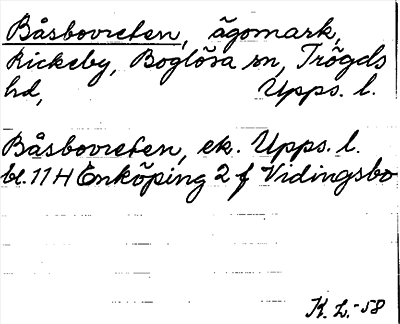 Båsbovreten, ägomark,
Rickeby, Boglösa sn, Trögds
hd, Upps. l.
Båsbovreten, ek. Upps. l.
bl. 11 H Enköping 2 f Vidingsbo
K. L. -58